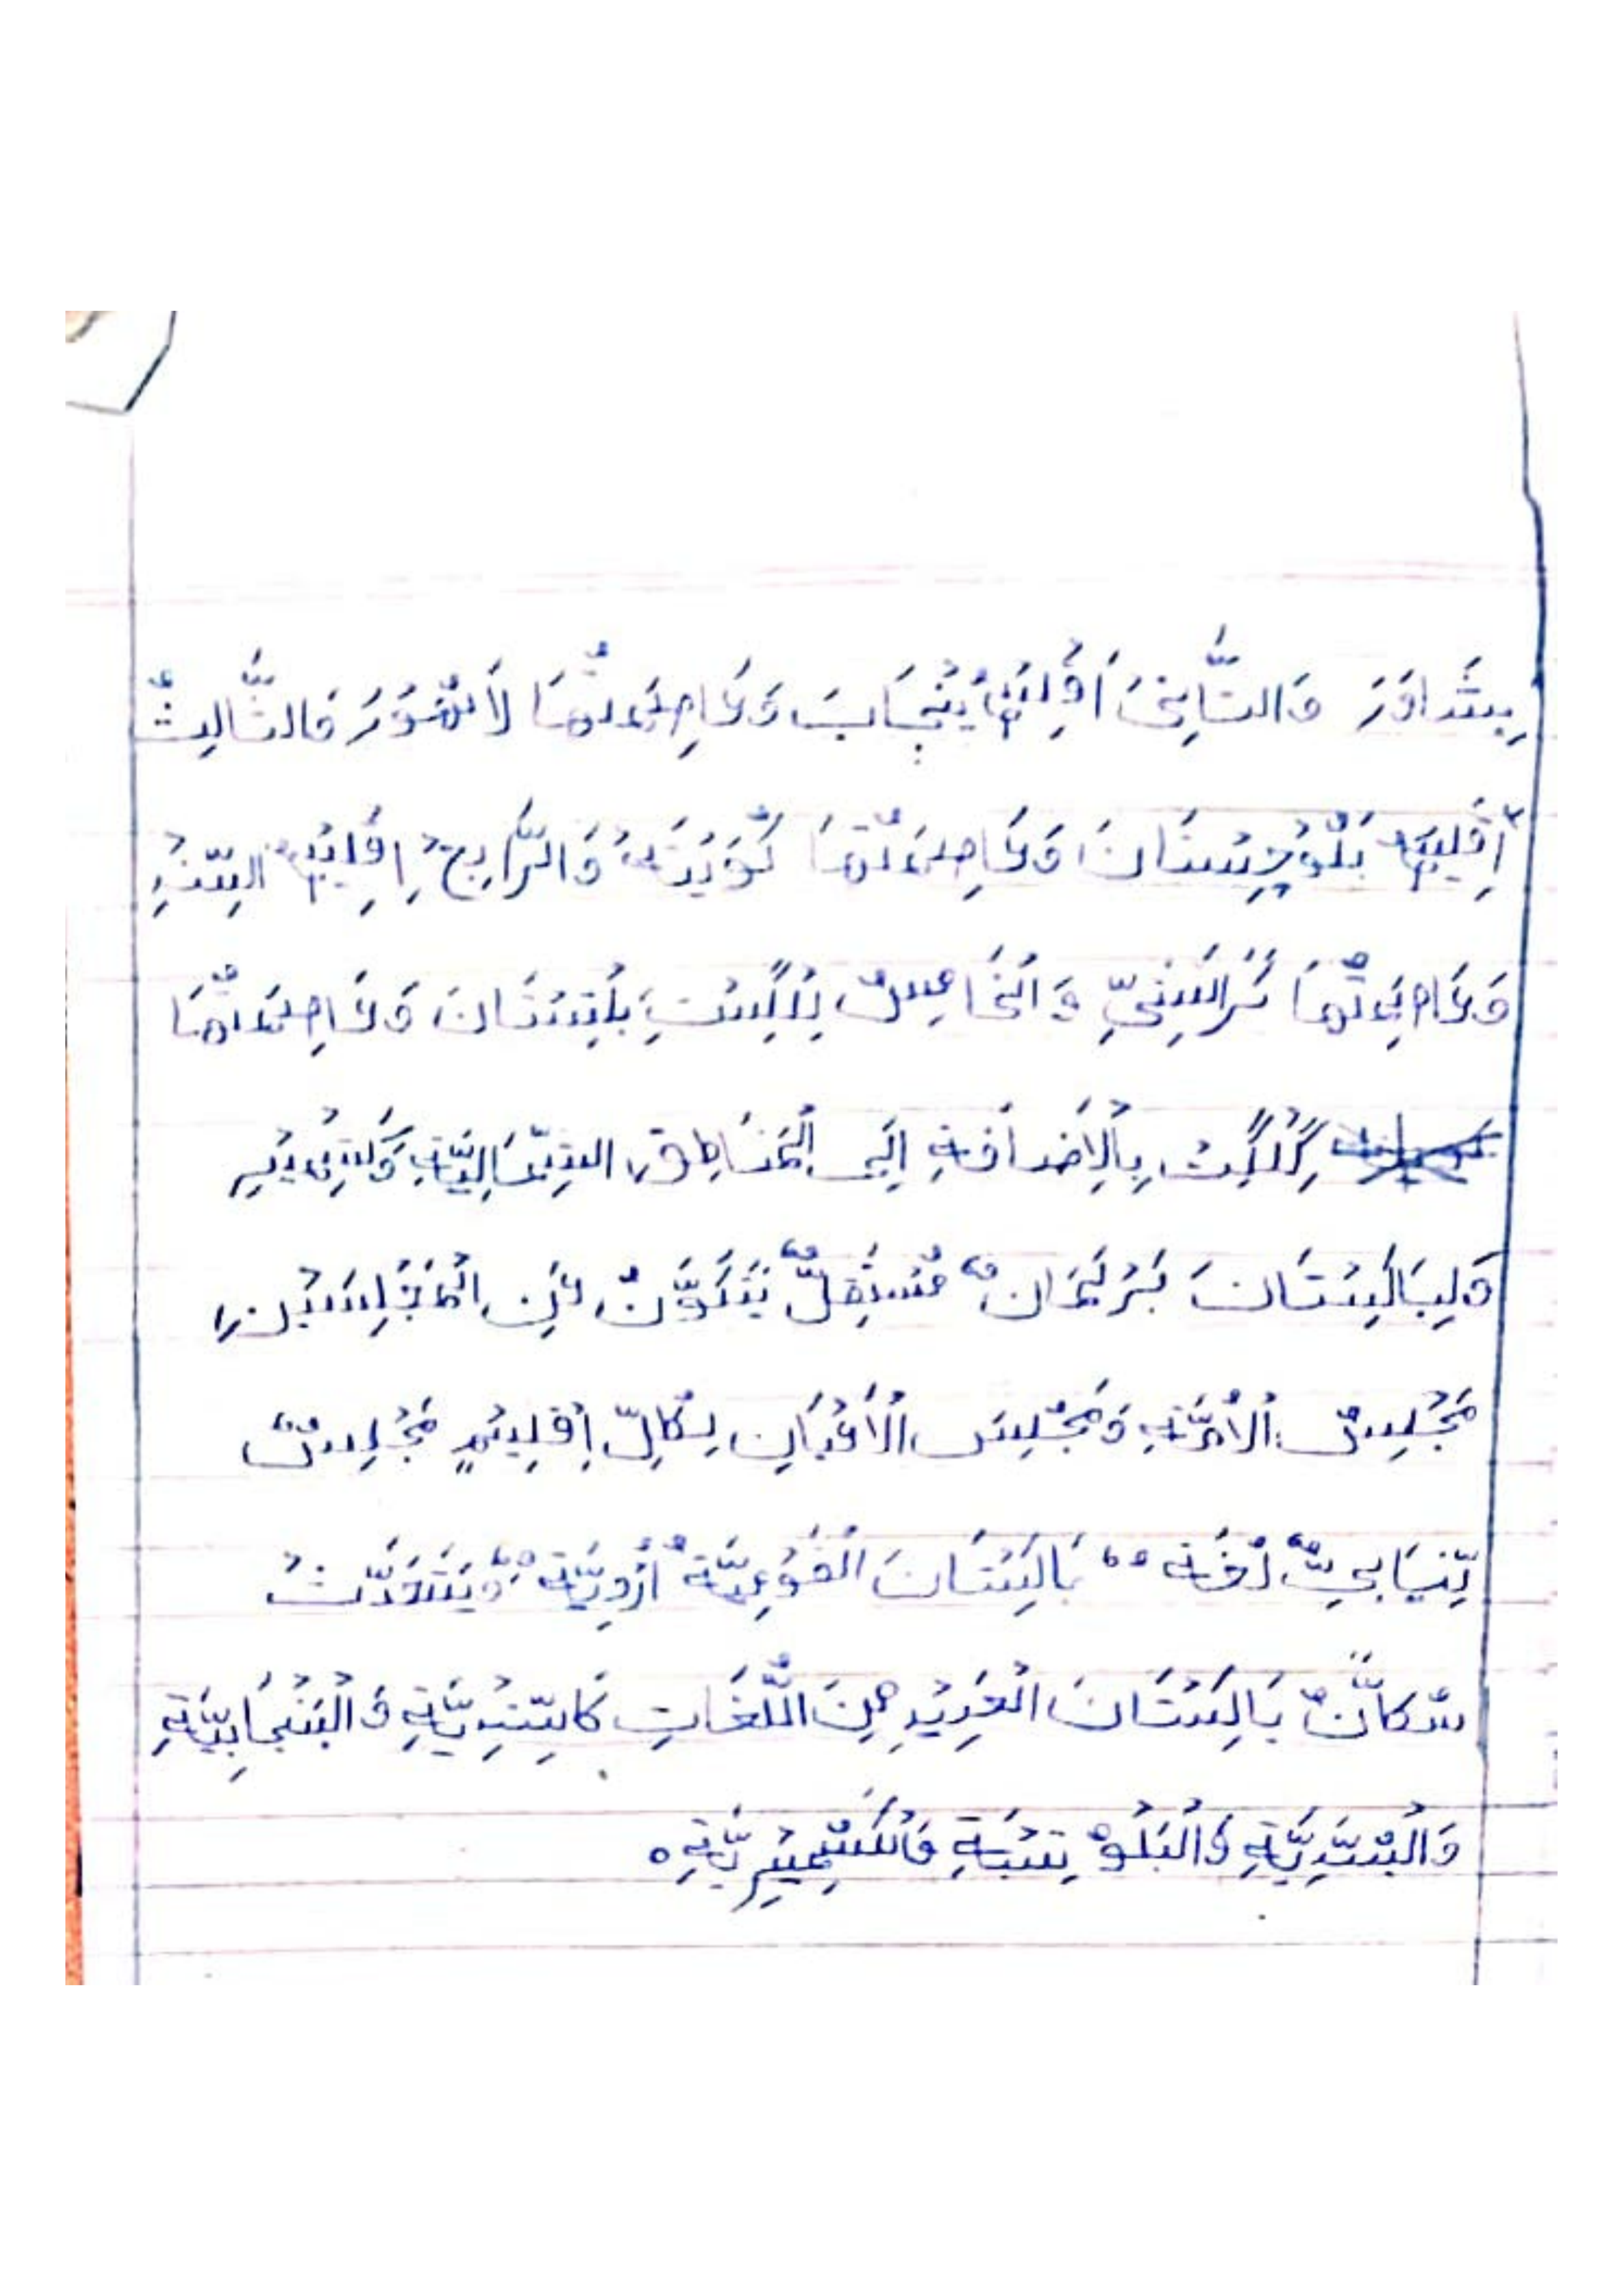 بِشَاوَرَ وَالثَّانِيَ اَقْلِيْمُ بَنْجَابَ وَعَاصِمَتُهَا لَاهُوْرَ وَالثَّالِثُ
اِقْلِيْمُ بَلُوْچِسْتَانَ وَعَاصِمَتُهَا كُوَيْتَهُ وَالرَّابِعُ اِقْلِيْمُ السِّنْدِ
وَعَاصِمَتُهَا كَرَاتْشِيّ وَالْخَامِسُ بِلْگِسْتَ بَلْتِسْتَانَ وَعَاصِمَتُهَا
گِلْگِتْ بِالْاِضَافَةِ اِلَى الْمَنَاطِقِ الشِّمَالِيَّةِ وَكَشْمِيْرِ
وَلِبَاكِسْتَانَ بَرْلَمَانٌ مُسْتَقِلٌّ يَتَكَوَّنُ مِنَ الْمَجْلِسَيْنِ
مَجْلِسُ الْاُمَّةِ وَمَجْلِسُ الْاَعْيَانِ لِكُلِّ اِقْلِيْمٍ مَجْلِسٌ
نِّيَابِيٌّ لُغَةُ بَاكِسْتَانَ الْقَوْمِيَّةُ اُرْدِيَّةٌ وَيَتَحَدَّثُ
سُكَّانُ بَاكِسْتَانَ الْعَدِيْدِ مِنَ اللُّغَاتِ كَالسِّنْدِيَّةِ وَالْبَنْجَابِيَّةِ
وَالْبُشْتِيَّةِ وَالْبَلُوْتِشِيَّةِ وَالْكَشْمِيْرِيَّةِ ۰